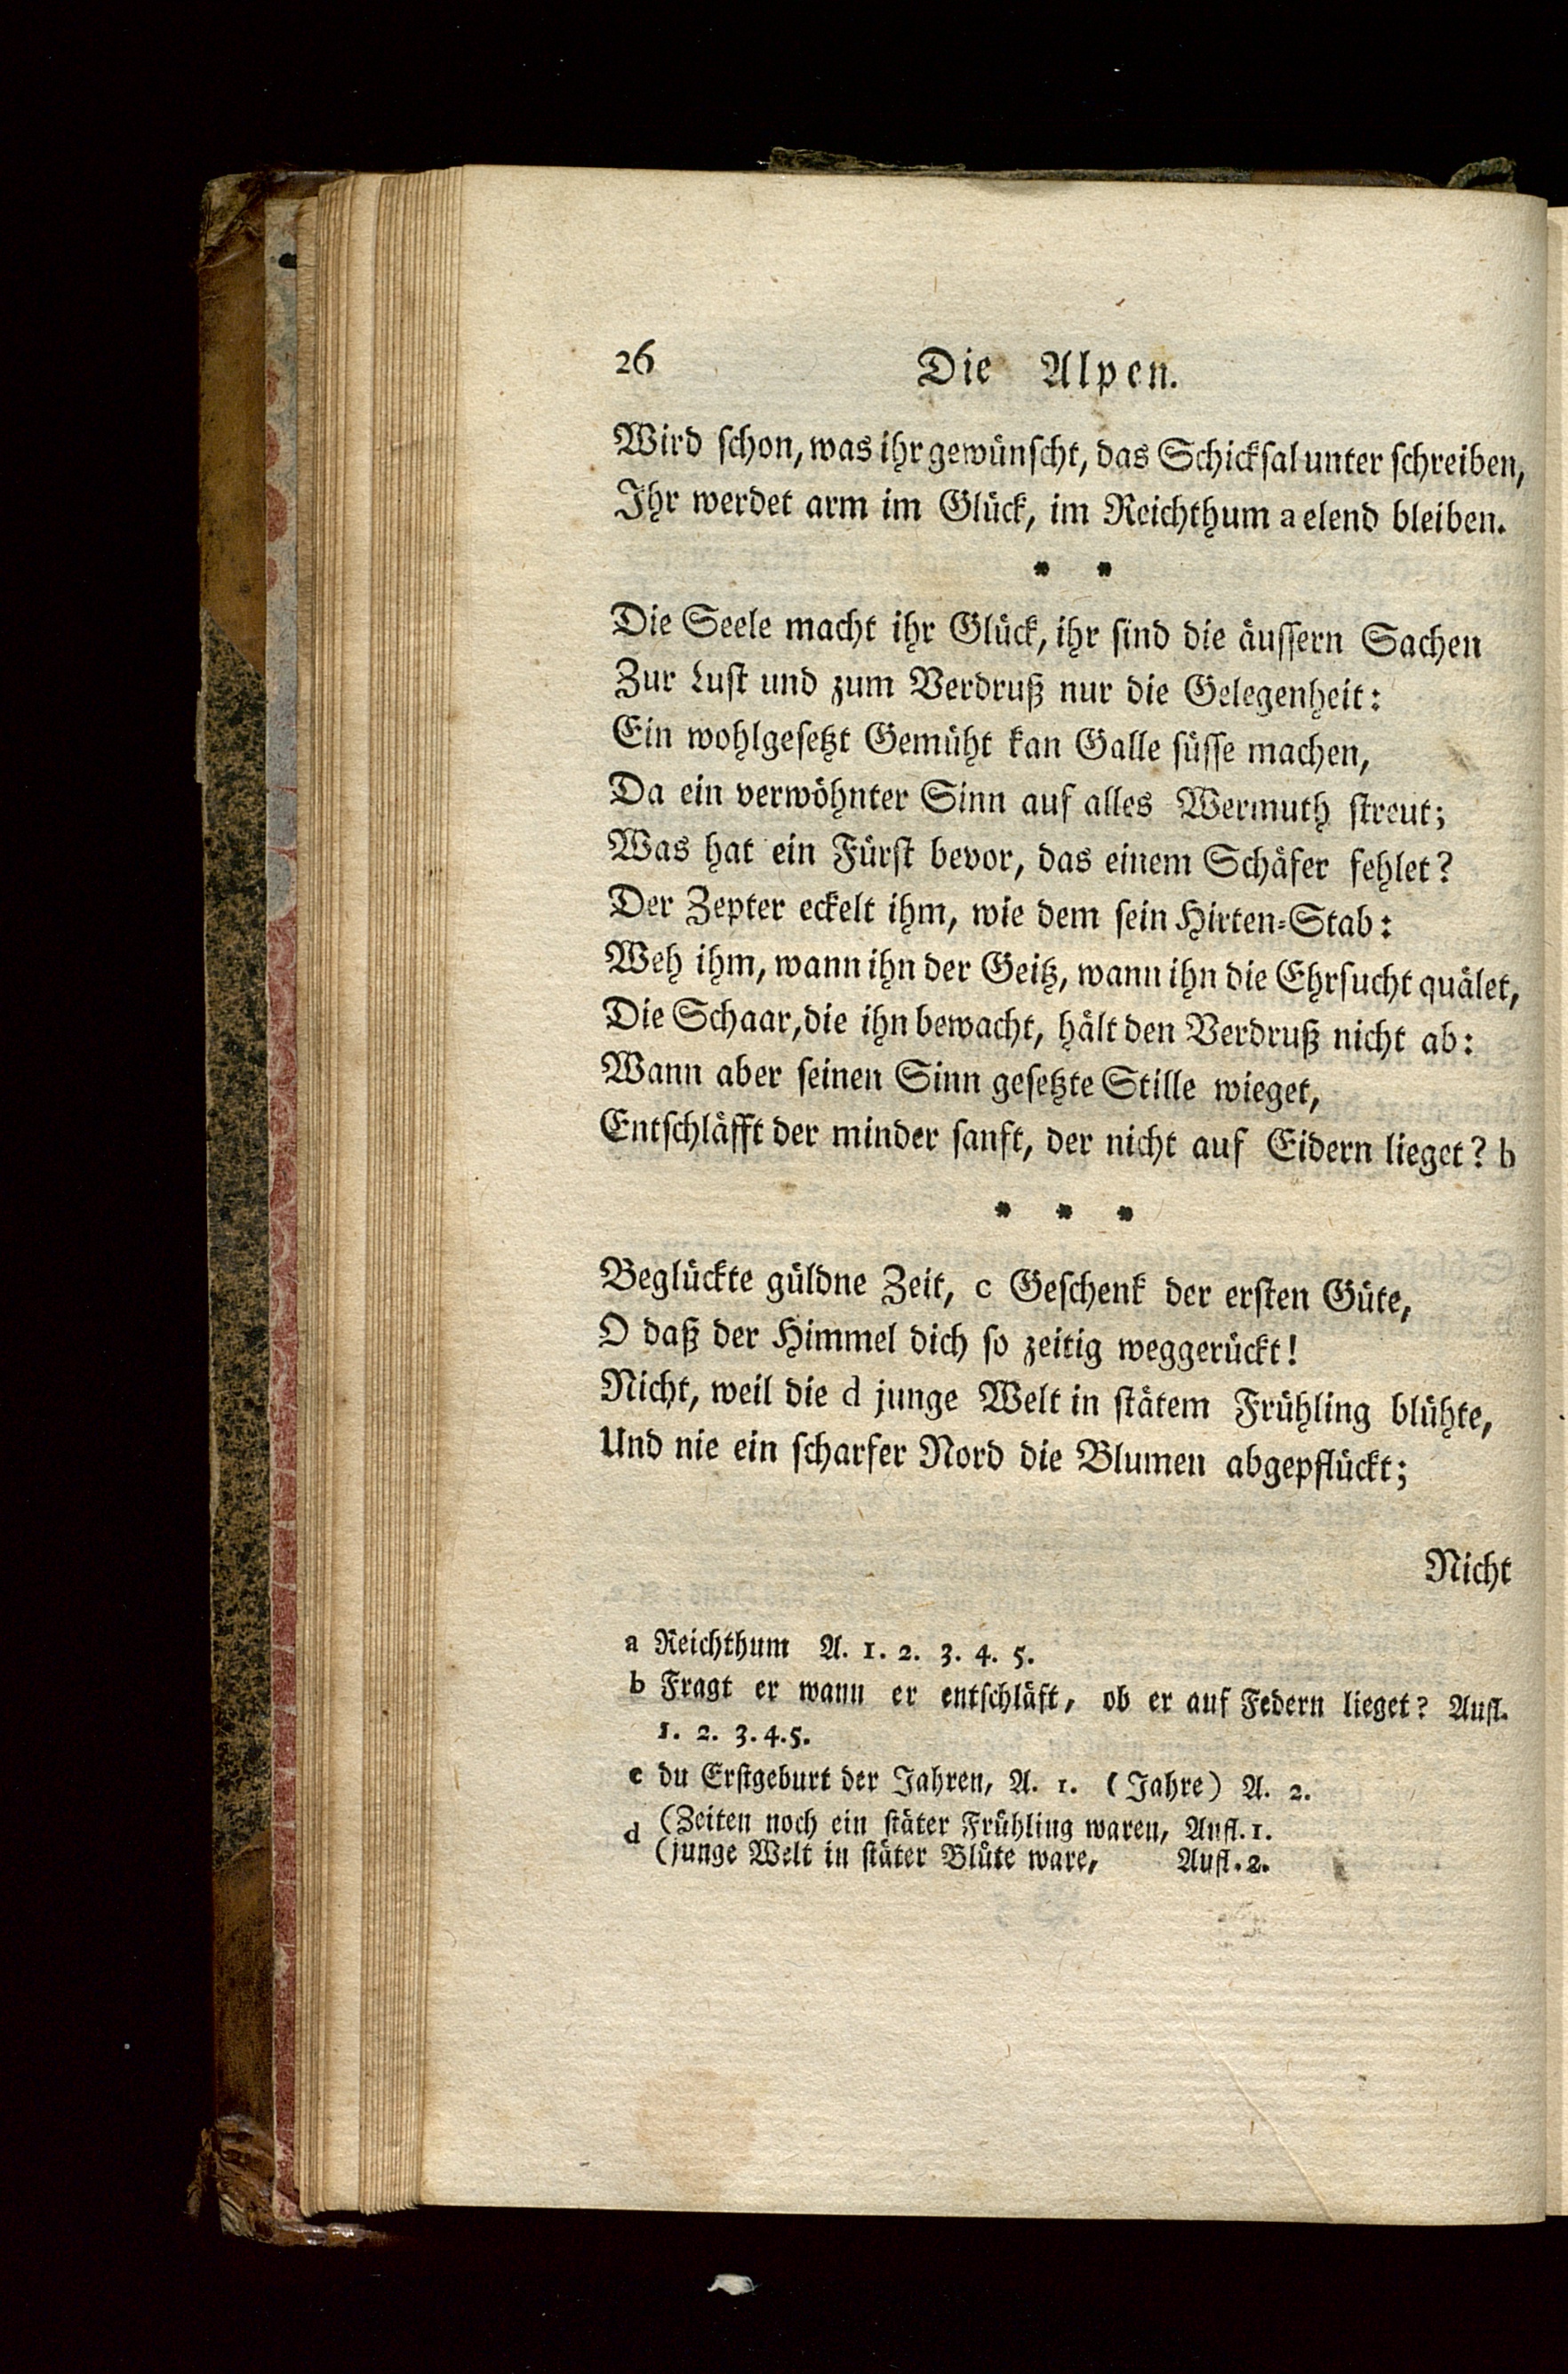 26 Die Alpen.
Wird schon, was ihr gewünscht, das Schicksal unter schreiben,
Ihr werdet arm im Glück, im Reichthum a elend bleiben.
* *
Die Seele macht ihr Glück, ihr sind die äussern Sachen
Zur Lust und zum Verdruß nur die Gelegenheit:
Ein wohlgesetzt Gemüht kan Galle süsse machen,
Da ein verwöhnter Sinn auf alles Wermuth streut;
Was hat ein Fürst bevor, das einem Schäfer fehlet?
Der Zepter eckelt ihm, wie dem sein Hirten-Stab:
Weh ihm, wann ihn der Geitz, wann ihn die Ehrsucht quälet,
Die Schaar, die ihn bewacht, hält den Verdruß nicht ab:
Wann aber seinen Sinn gesetzte Stille wieget,
Entschläfft der minder sanft, der nicht auf Eidern lieget? b
* * *
Beglückte güldne Zeit, c Geschenk der ersten Güte,
O daß der Himmel dich so zeitig weggerückt!
Nicht, weil die d junge Welt in stätem Frühling blühte,
Und nie ein scharfer Nord die Blumen abgepflückt;
Nicht
a Reichthum A. 1. 2. 3. 4. 5.
b Fragt er wann er entschläft, ob er auf Federn lieget? Aufl.
1. 2. 3. 4. 5.
c du Erstgeburt der Jahren, A. 1. (Jahre) A. 2.
d (Zeiten noch ein stäter Frühling waren, Aufl. 1.
(junge Welt in stäter Blüte ware, Aufl. 2.